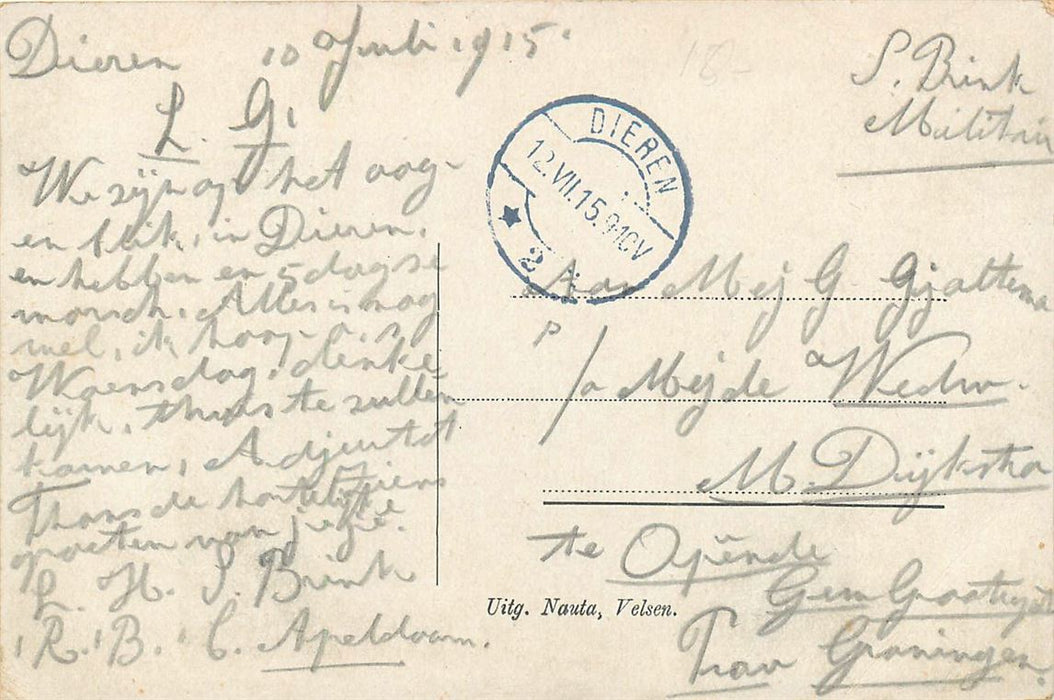 Dieren 10 Juli 1915.
L. G.
We zijn op het oog-
en blik, in Dieren,
en hebben en 5 dagse
marsch. Alles is nog
wel, ik hoop a.s.
Woensdag, dinke
lijk, thuis te zullen
komen, Adjeu tot
ziens
Thans de hartelijke
groeten van je
L. H. S. Brink
R. B. C. Apeldoorn.
S. Brink
Militair
DIEREN
12.VII.15.9-10V
2
Aan Mej G Gjaltema
P/a Mej de Wedw.
M. Dijkstra
te Opënde
Gem Grootegast
Prov Groningen.
Uitg. Nauta, Velsen.